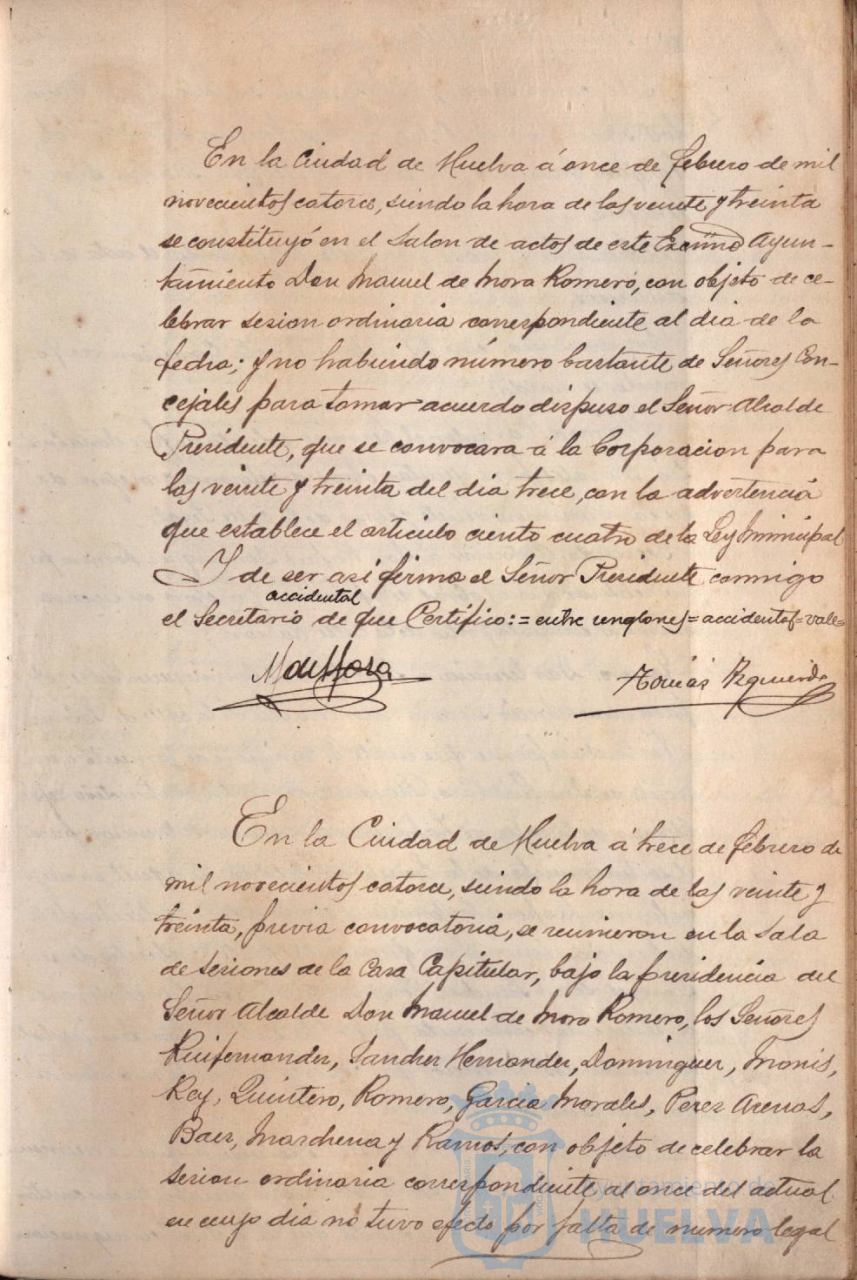 En la Ciudad de Huelva á once de febrero de mil
novecientos catorce, siendo la hora de las veinte y treinta
se constituyó en el Salon de actos de este Excmo Ayun-
tamiento Don Manuel de Mora Romero, con objeto de ce-
lebrar sesion ordinaria correspondiente al dia de la
fecha; y no habiendo número bastante de Señores Con-
cejales para tomar acuerdo dispuso el Señor Alcalde
Presidente, que se convocara á la Corporacion para
las veinte y treinta del dia trece, con la advertencia
que establece el articulo ciento cuatro de la Ley Municipal
Y de ser asi firma el Señor Presidente conmigo
accidental
el Secretario de que Certifico:= entre renglones=accidental=vale=
M de Mora
Tomás Izquierdo
En la Ciudad de Huelva á trece de febrero de
mil novecientos catorce, siendo la hora de las veinte y
treinta, previa convocatoria, se reunieron en la Sala
de sesiones de la Casa Capitular, bajo la presidencia del
Señor Alcalde Don Manuel de Mora Romero, los Señores
Ruifernandez, Sanchez Hernandez, Dominguez, Monis,
Rey, Quintero, Romero, Garcia Morales, Perez Arenas,
Baez, Marchena y Ramos, con objeto de celebrar la
sesion ordinaria correspondiente al once del actual
en cuyo dia no tuvo efecto por falta de numero legal
Ayuntamiento de
HUELVA